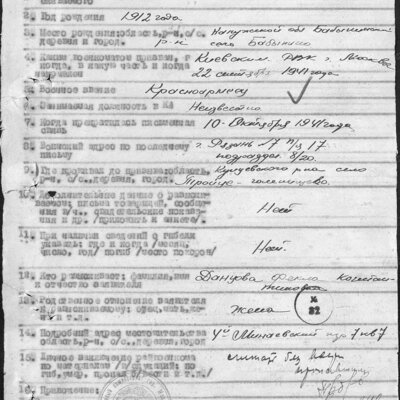 2. Год рождения 1912 года
3. Место рождения: область, р-н, с/с. деревня и город. Калужской обл Бабынинский р-н село Бабынино
4. Каким военкоматом призван, и когда, в какую часть и когда Киевским РВК г. Москва 22 сентября 1941 года
5. Военное звание Красноармеец
6. Занимаемая должность в КА Неизвестно
7. Когда прекратилась письменная связь 10-Октября 1941 года
8. Воинский адрес по последнему письму г. Рязань №7 п/я 17 подраздел. 8/20.
9. Где проживал до призыва: область, р-н, с/с.. деревня, город. Кунцевский р-на село Троице-голенищево
10. Дополнительные данные о разыскиваемом; письма товарищей, /приложить к анкете/. Нет
11. При наличии сведений о гибели указать: где и когда /число, месяц, год/ погиб /место похорон/ Нет
12. Кто разыскивает: фамилия, имя и отчество заявителя Данцова Фекла
13. Родственное отношение заявителя к разыскиваемому: отец, мать, жена и т.д. Жена
№ 82
14. Подробный адрес местожительства область, р-н, с/с.. деревня, город 4й Минаевский пр. 7 кв 7
15. Личное заключение райвоенкома считать без вести
16. Приложение: